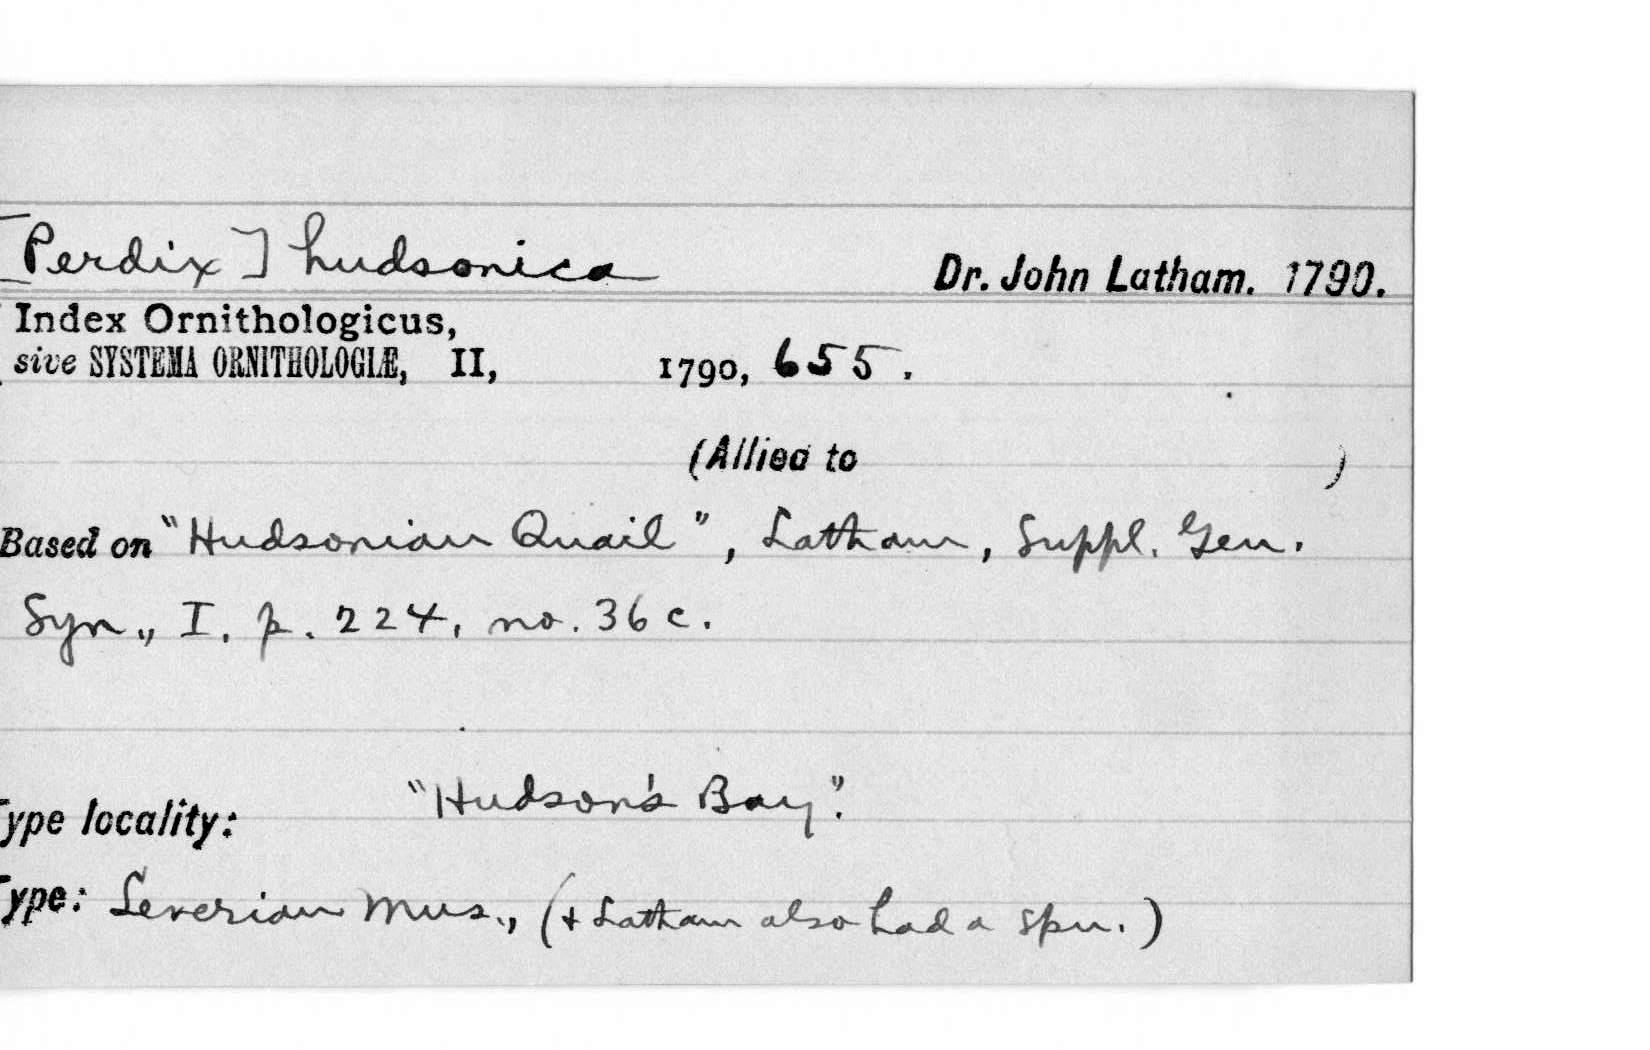 [Perdix] hudsonica
Dr. John Latham. 1790.
Index Ornithologicus,
sive SYSTEMA ORNITHOLOGIÆ, II, 1790, 655.
(Allied to )
Based on "Hudsonian Quail", Latham, Suppl. Gen.
Syn., I, p. 224, no. 36c.
Type locality: "Hudson's Bay".
Type: Leverian Mus., (+ Latham also had a spn.)